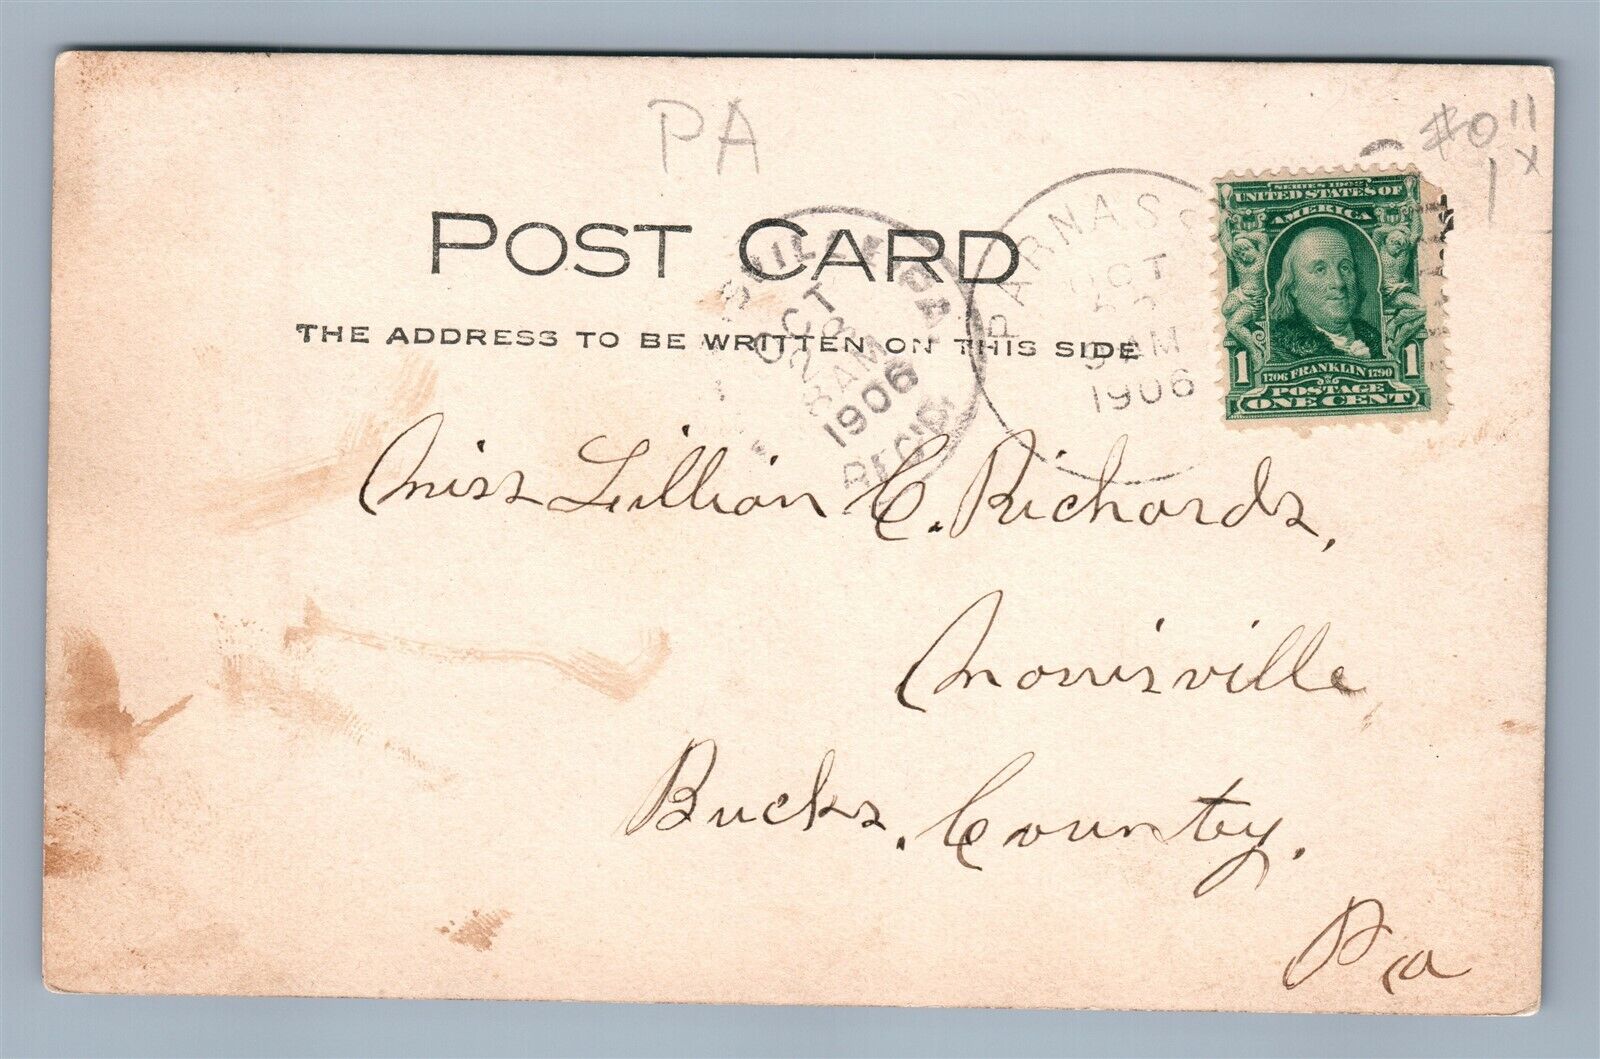 PA
#0 11
1 x
POST CARD
THE ADDRESS TO BE WRITTEN ON THIS SIDE
PARNASS
OCT
9 AM
1906
OCT
8 AM
1906
REC'D.
SERIES 1902
UNITED STATES OF
AMERICA
1 1706 FRANKLIN 1790 1
POSTAGE
ONE CENT
Miss Lillian C. Richards,
Morrisville
Bucks. County.
Pa